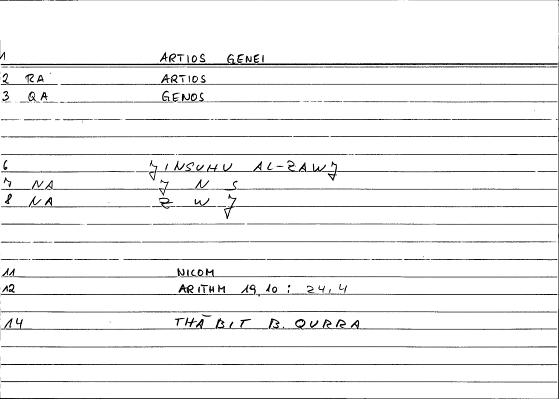 1 ARTIOS GENEI
2 RA ARTIOS
3 QA GENOS
6 JINSUHU AL-ZAWJ
7 NA J N S
8 NA Z W J
11 NICOM
12 ARITHM 19,10 : 24,4
14 THĀBIT B. QURRA